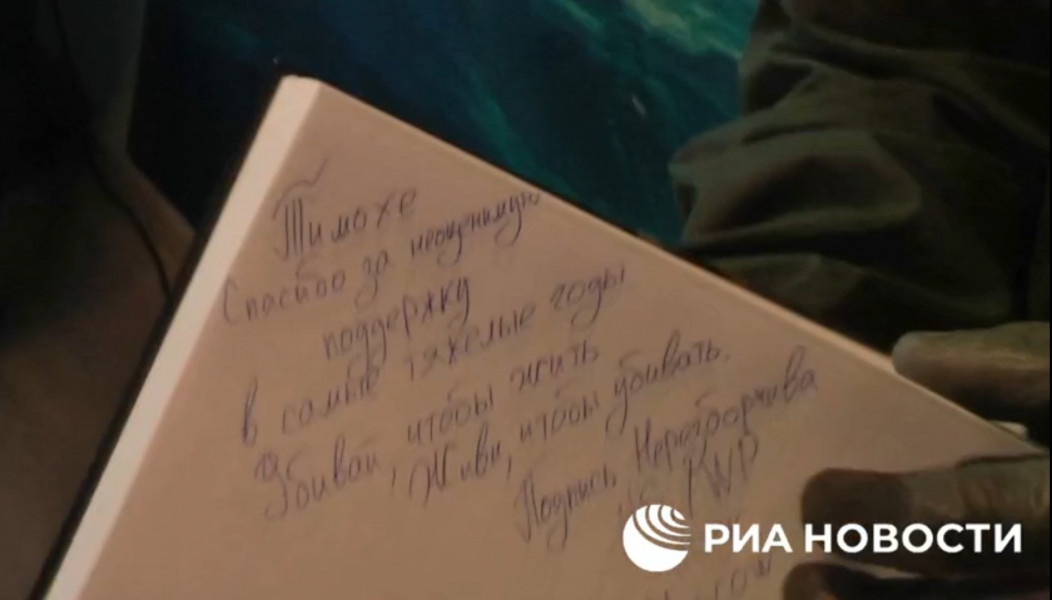 Тимохе
Спасибо за неоценимую
поддержку
в самые тяжелые годы
Убивай, чтобы жить
Живи, чтобы убивать.
Подпись Неразборчива
РИА НОВОСТИ